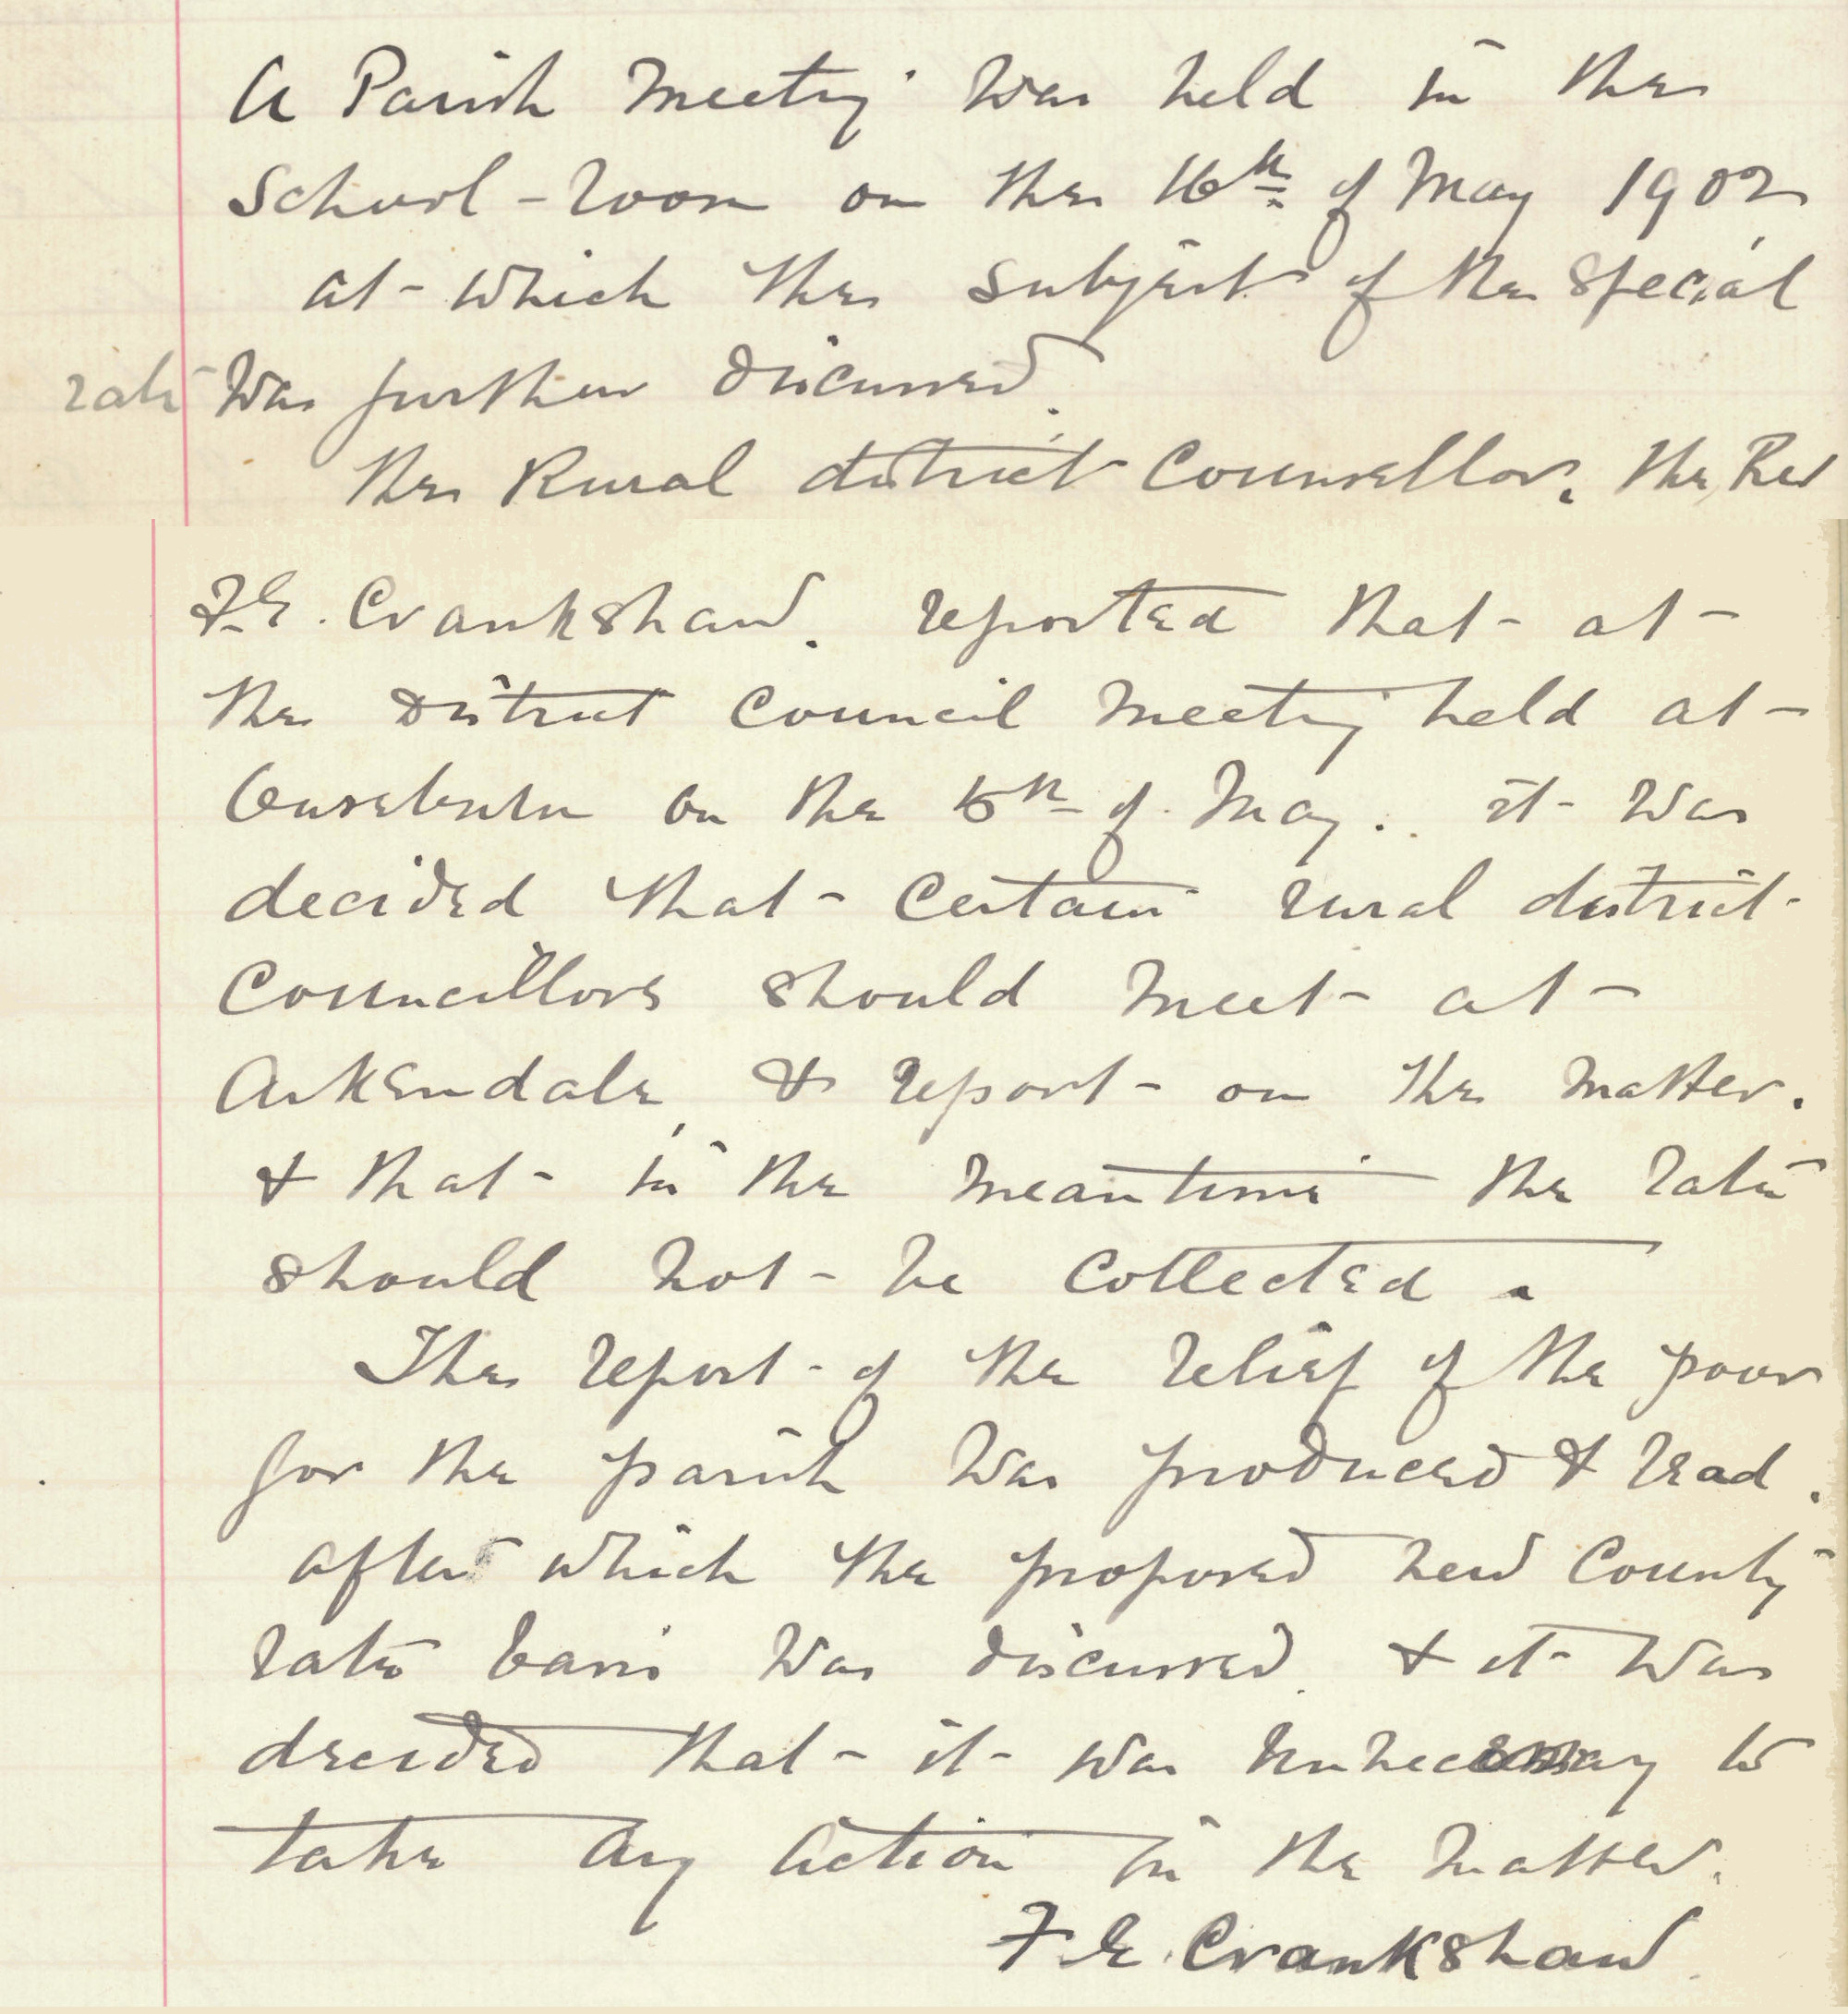 A Parish Meeting was held in the
School-room on the 16th of May 1902
at which the subject of the special
rate was further discussed.
The Rural district Counsellor, the Rev
F.E. Crankshaw. reported that at
the District Council Meeting held at
Ouseburn on the of May. it was
decided that certain rural district
Councillors should meet at
Arkendale, & report on the matter.
& that in the meantime the rate
should not be collected.
The report of the relief of the poor
for the parish was produced & read.
after which the proposed new County
rate basis was discussed. & it was
decided that it was unnecessary to
take any action in the matter.
F.E. Crankshaw.